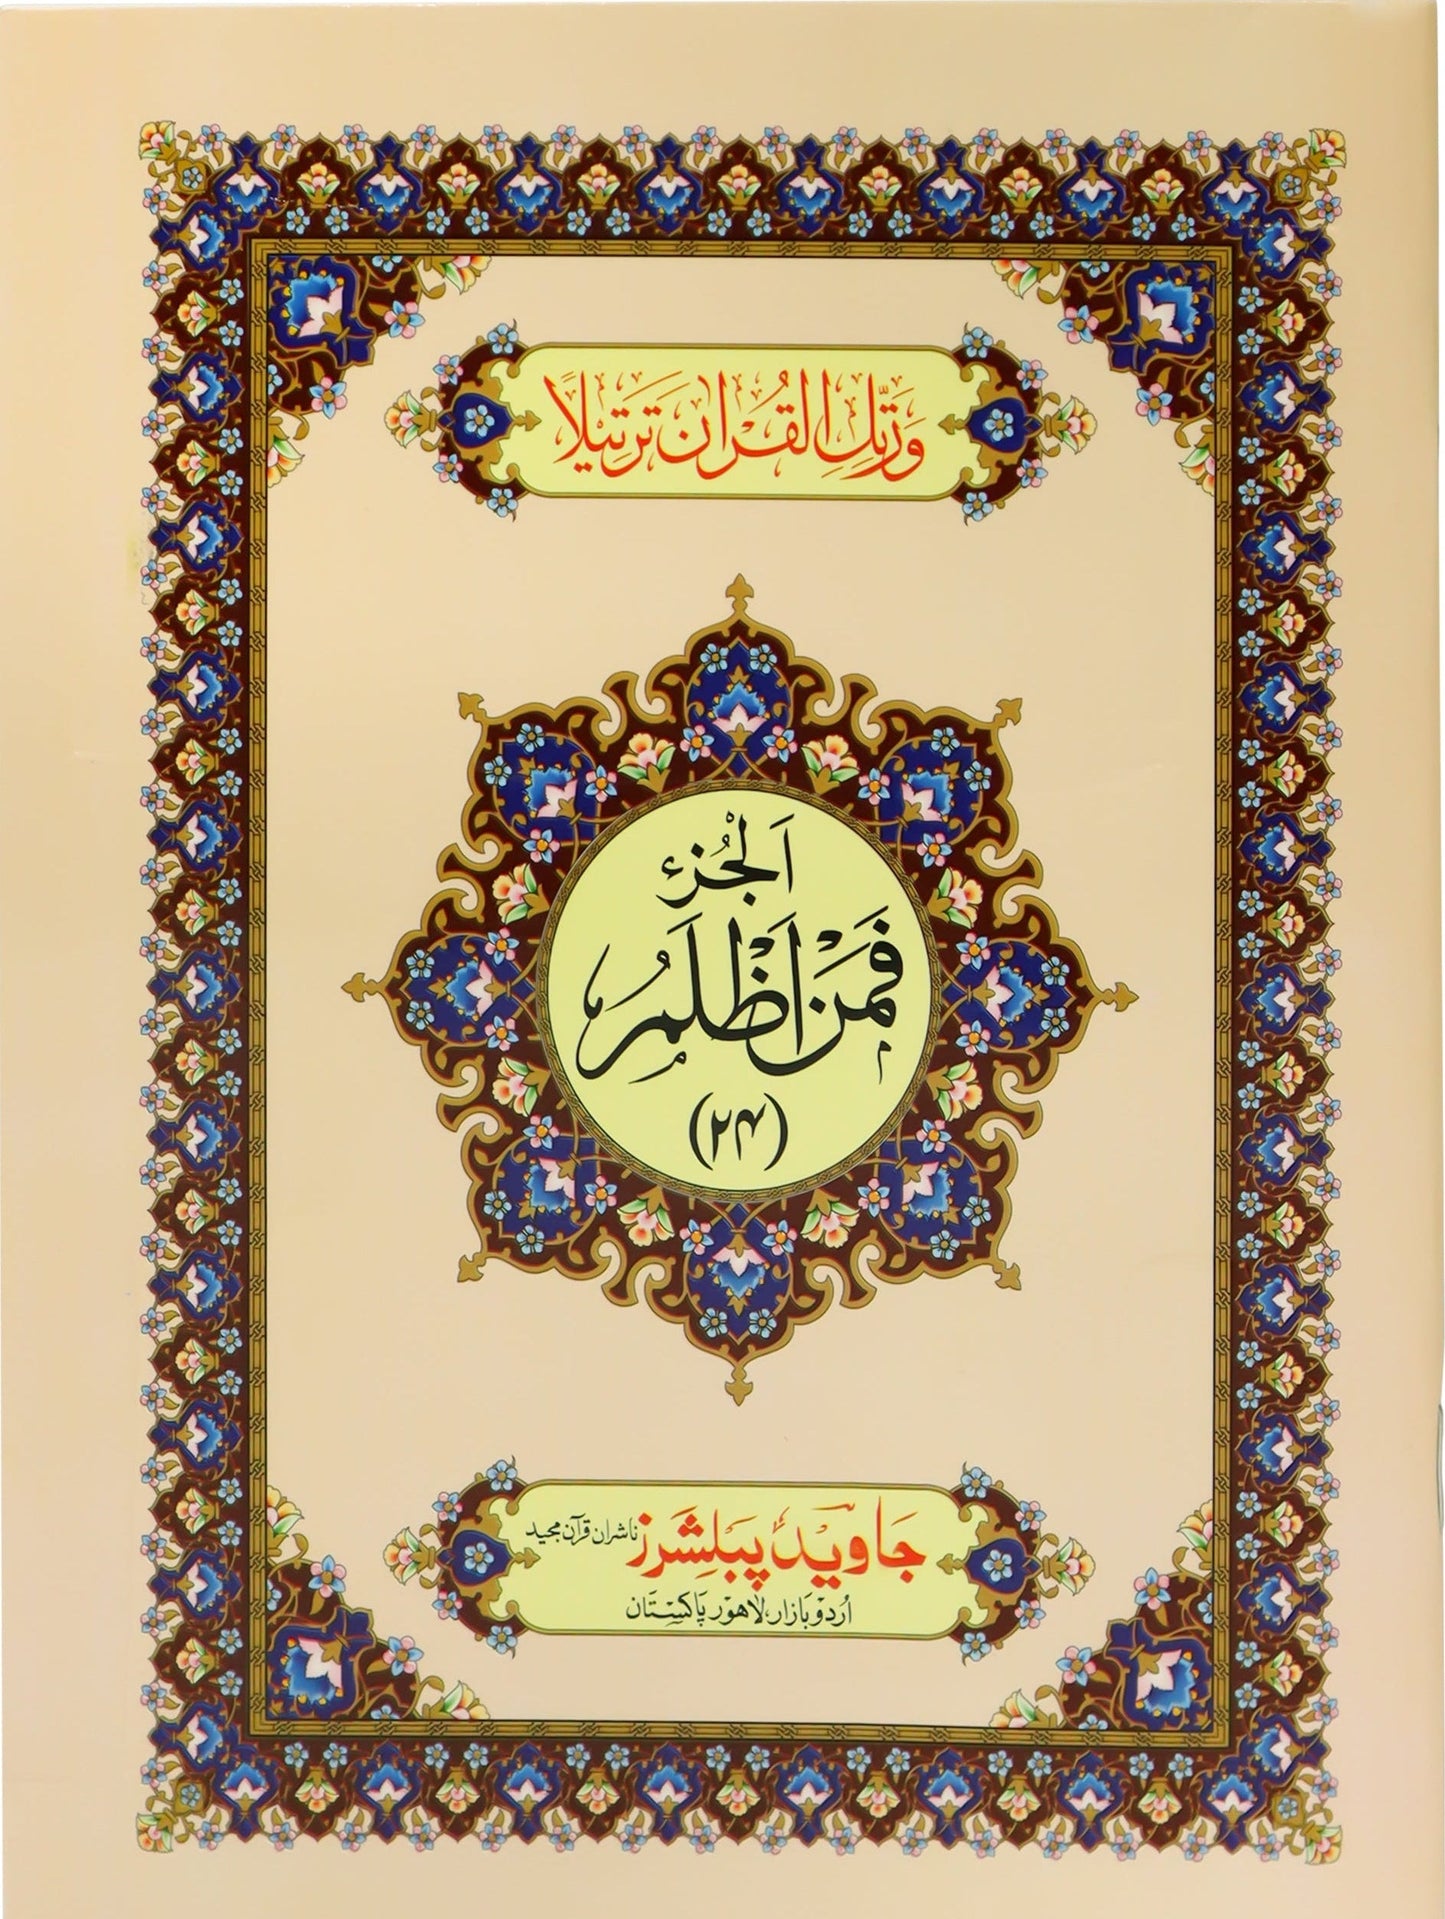 وَرَتِّلِ الْقُرْاٰنَ تَرْتِيْلًا
اَلْجُزْءُ
فَمَنْ اَظْلَمُ
(۲۴)
جاوید پبلشرز ناشران قرآن مجید
اُردو بازار، لاہور پاکستان